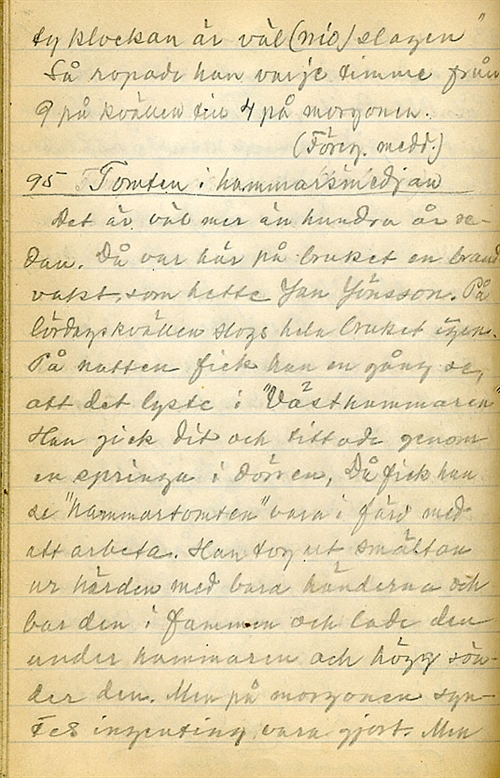 ty klockan är väl (nio) slagen"
Så ropade han varje timme från
9 på kvällen till 4 på morgonen.
(Föreg. medd.)
95 Tomten i hammarsmedjan
Det är väl mer än hundra år se-
dan. Då var här på bruket en brand
vakt, som hette Jan Jönsson. På
lördagskvällen slogs hela bruket igen.
På natten fick han en gång se,
att det lyste i "Västhammaren"
Han gick dit och tittade genom
en springa i dörren, Då fick han
se "hammartomten" vara i färd med
att arbeta. Han tog ut smältan
ur härden med bara händerna och
bar den i famnen och lade den
under hammaren och högg sön-
der den. Men på morgonen syn-
tes ingenting vara gjort. Men